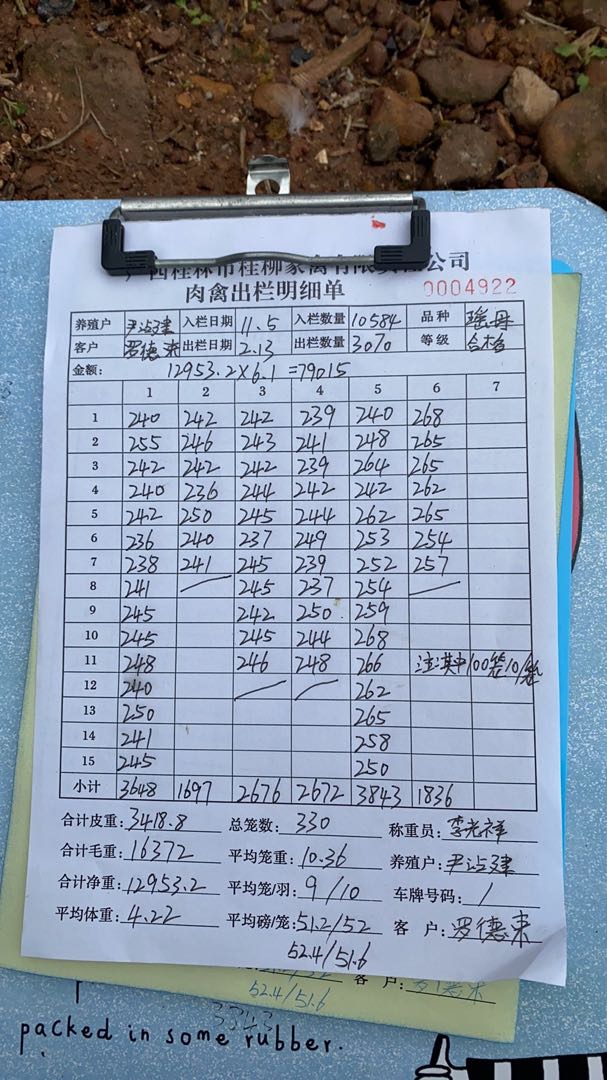 西桂林市桂柳家禽有限公司
肉禽出栏明细单 0004922
养殖户 入栏日期 11.5 入栏数量 10584 品种 瑶丹
客户 罗德来 出栏日期 2.13 出栏数量 3070 等级 合格
金额: 12953.2×6.1=79015
1 2 3 4 5 6 7
1 240 242 242 239 240 268
2 255 246 243 241 248 265
3 242 242 242 239 264 265
4 240 236 244 242 242 262
5 242 250 245 244 262 265
6 236 240 237 249 253 254
7 238 241 245 239 252 257
8 241 / 245 237 254 /
9 245 242 250 259
10 245 245 244 268
11 248 246 248 266 注:其中100笼10/笼
12 240 / / 262
13 250 265
14 241 258
15 245 250
小计 3648 1697 2676 2672 3843 1836
合计皮重: 3418.8 总笼数: 330 称重员: 李光祥
合计毛重: 16372 平均笼重: 10.36 养殖户:
合计净重: 12953.2 平均笼/羽: 9/10 车牌号码: /
平均体重: 4.22 平均磅/笼: 51.2/52 客 户: 罗德来
52.4/51.6
客 户:
52.4/51.6
3343
packed in some rubber.